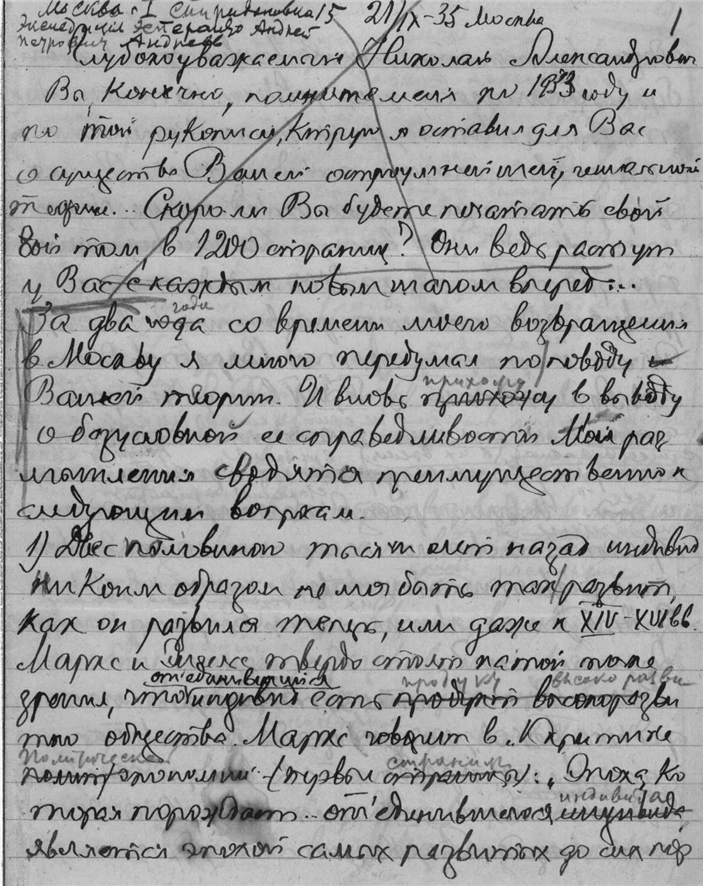 Москва - I Спиридоновка 15 21/IX-35 Москва 1
Экспедиция Эсперанто Андрей
Петрович Андреев
Глубокоуважаемый Николай Александрович
Вы, конечно, помните меня по 1933 году и
по той рукописи, которую я оставил для Вас
о существе Вашей остроумнейшей, гениальной
теории... Скоро ли Вы будете печатать свой
8ой том в 1200 страниц? Они ведь растут
у Вас с каждым новым шагом вперед...
годы
За два года со времени моего возвращения
в Москву я много передумал по поводу
прихожу
Вашей теории. И вновь прихожу в выводу
о безусловной ее справедливости Мои раз
мышления сводятся преимущественно к
следующим вопросам.
1) Две с половиною тысячи лет назад индивид
ни коим образом не мог быть так развит,
как он развился теперь, или даже к XIV-XVI вв.
Маркс и Энгельс твердо стоят на той точке
отъединившийся продукт высоко разви
зрения, что индивид есть продукт высокоразви
того общества. Маркс говорит в „Критике
Политической страницы
полит экономии" (первые страницы): „Эпоха ко
индивида
торая порождает.. отъединившегося индивида
является эпохой самых развитых до сих пор